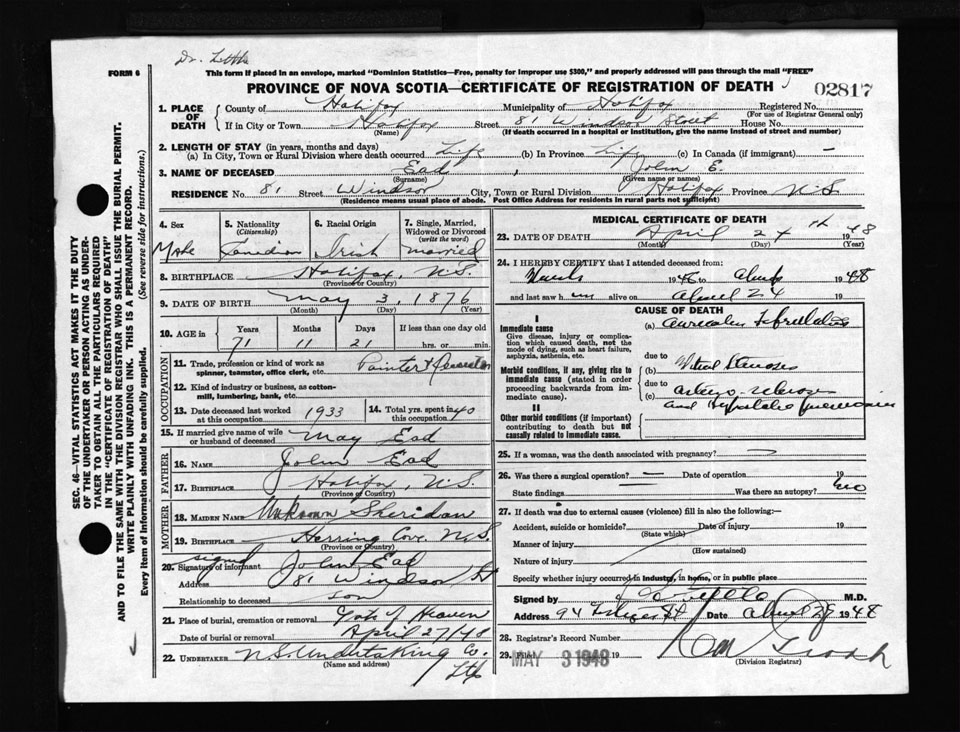 Dr. Little
FORM 6
This form if placed in an envelope, marked "Dominion Statistics—Free, penalty for improper use $300," and properly addressed will pass through the mail "FREE"
PROVINCE OF NOVA SCOTIA—CERTIFICATE OF REGISTRATION OF DEATH
02817
1. PLACE OF DEATH
County of Halifax Municipality of Halifax Registered No.
(For use of Registrar General only)
If in City or Town Halifax Street 81 Windsor Street House No.
(Name) (If death occurred in a hospital or institution, give the name instead of street and number)
2. LENGTH OF STAY (in years, months and days)
(a) In City, Town or Rural Division where death occurred Life (b) In Province Life (c) In Canada (if immigrant) —
3. NAME OF DECEASED Ead, John E.
(Surname) (Given name or names)
RESIDENCE No. 81 Street Windsor City, Town or Rural Division Halifax Province N.S.
(Residence means usual place of abode. Post Office Address for residents in rural parts not sufficient)
4. Sex
Male
5. Nationality
(Citizenship)
Canadian
6. Racial Origin
Irish
7. Single, Married, Widowed or Divorced
(write the word)
married
8. BIRTHPLACE Halifax, N.S.
(Province or Country)
9. DATE OF BIRTH May 3, 1876
(Month) (Day) (Year)
10. AGE in Years Months Days If less than one day old
71 11 21 hrs. or min.
OCCUPATION
11. Trade, profession or kind of work as
spinner, teamster, office clerk, etc. Painter &
12. Kind of industry or business, as cotton-
mill, lumbering, bank, etc.
13. Date deceased last worked
at this occupation 1933
14. Total yrs. spent in
this occupation 40
15. If married give name of wife
or husband of deceased May Ead
FATHER
16. NAME John Ead
17. BIRTHPLACE Halifax, N.S.
(Province or Country)
MOTHER
18. MAIDEN NAME Unknown Sheridan
19. BIRTHPLACE Herring Cove N.S.
(Province or Country)
signed
20. Signature of informant John Ead
Address 81 Windsor St
Relationship to deceased son
21. Place of burial, cremation or removal Gate of Heaven
Date of burial or removal April 27/48
22. UNDERTAKER N.S. Undertaking Co.
(Name and address) Ltd
MEDICAL CERTIFICATE OF DEATH
23. DATE OF DEATH April 24th 1948
(Month) (Day) (Year)
24. I HEREBY CERTIFY that I attended deceased from:
March 1946 to April 1948
and last saw him alive on April 24 19
CAUSE OF DEATH
I
Immediate cause
Give disease, injury or complica-
tion which caused death, not the
mode of dying, such as heart failure,
asphyxia, asthenia, etc.
(a) Auricular Fibrillation
due to
Morbid conditions, if any, giving rise to
immediate cause (stated in order
proceeding backwards from im-
mediate cause).
(b) Mitral Stenosis
due to
(c) arterio sclerosis
II
Other morbid conditions (if important)
contributing to death but not
causally related to immediate cause.
and Hypostatic pneumonia
25. If a woman, was the death associated with pregnancy? —
26. Was there a surgical operation? — Date of operation 19
State findings Was there an autopsy? no
27. If death was due to external causes (violence) fill in also the following:—
Accident, suicide or homicide? Date of injury 19
(State which)
Manner of injury
(How sustained)
Nature of injury
Specify whether injury occurred in industry, in home, or in public place
Signed by M.D.
Address 94 St Date April 1948
28. Registrar's Record Number
29. Filed MAY 3 1948 19
(Division Registrar)
SEC. 46—VITAL STATISTICS ACT MAKES IT THE DUTY
OF THE UNDERTAKER OR PERSON ACTING AS UNDER-
TAKER TO OBTAIN ALL THE PARTICULARS REQUIRED
IN THE "CERTIFICATE OF REGISTRATION OF DEATH"
AND TO FILE THE SAME WITH THE DIVISION REGISTRAR WHO SHALL ISSUE THE BURIAL PERMIT.
WRITE PLAINLY WITH UNFADING INK. THIS IS A PERMANENT RECORD.
Every item of information should be carefully supplied. (See reverse side for instructions.)